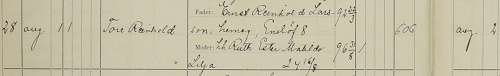 Fader: Ernst Reinhold Lars- 92 23/3
28 aug. 11 Tore Reinhold son, hemäg, Enslöf 8 606 aug. 2
Moder: h. h. Ruth Ester Mathilda 96 31/8 1
Lilja 24 16/8